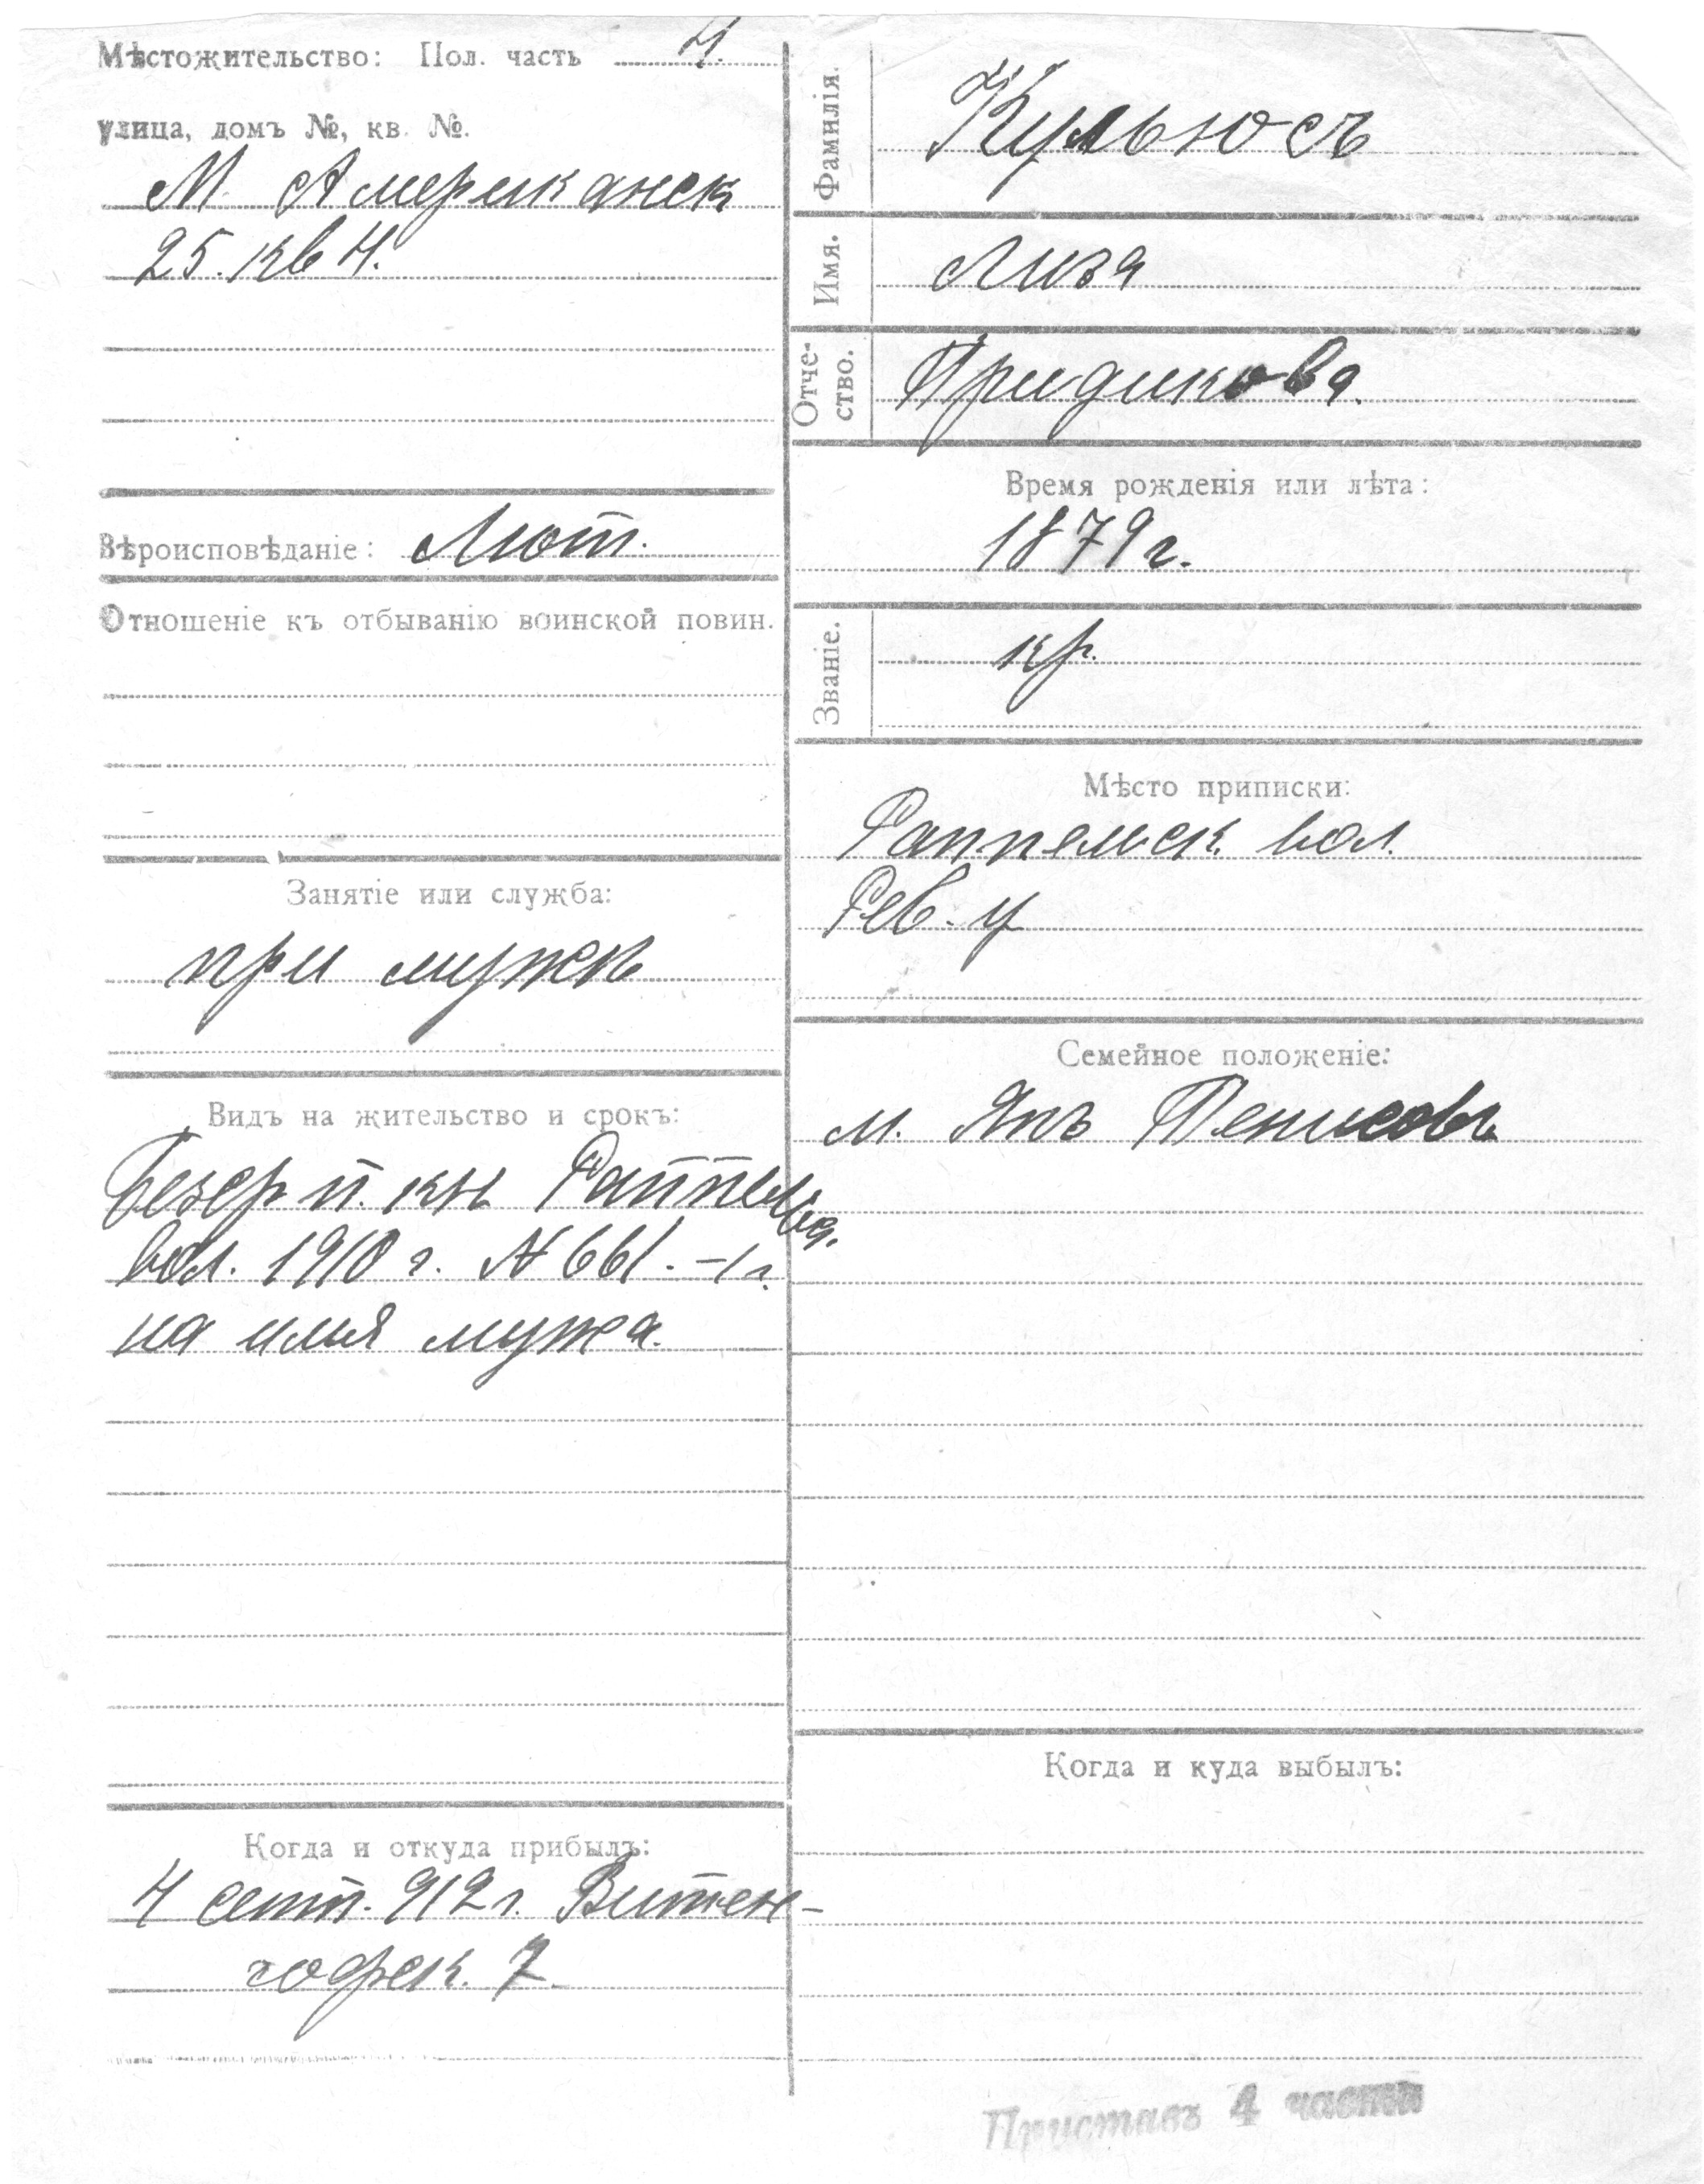 Мѣстожительство: Пол. часть 4.
улица, домъ №, кв. №.
М. Американск
25. кв 4.
Вѣроисповѣданіе: Лют.
Отношеніе къ отбыванію воинской повин.
Занятіе или служба:
при мужѣ
Видъ на жительство и срокъ:
п. кн Раппельск.
вол. 1910 г. № 661. -1 г.
на имя мужа.
Когда и откуда прибылъ:
4 сент. 912 г. Витен-
гофск. 7
Фамилія. Кульюсъ
Имя. Лиза
Отче-
ство. Придикова.
Время рожденія или лѣта:
1879 г.
Званіе. кр.
Мѣсто приписки:
Раппельск. вол.
Рев. у
Семейное положеніе:
м.
Когда и куда выбылъ:
Приставъ 4 части